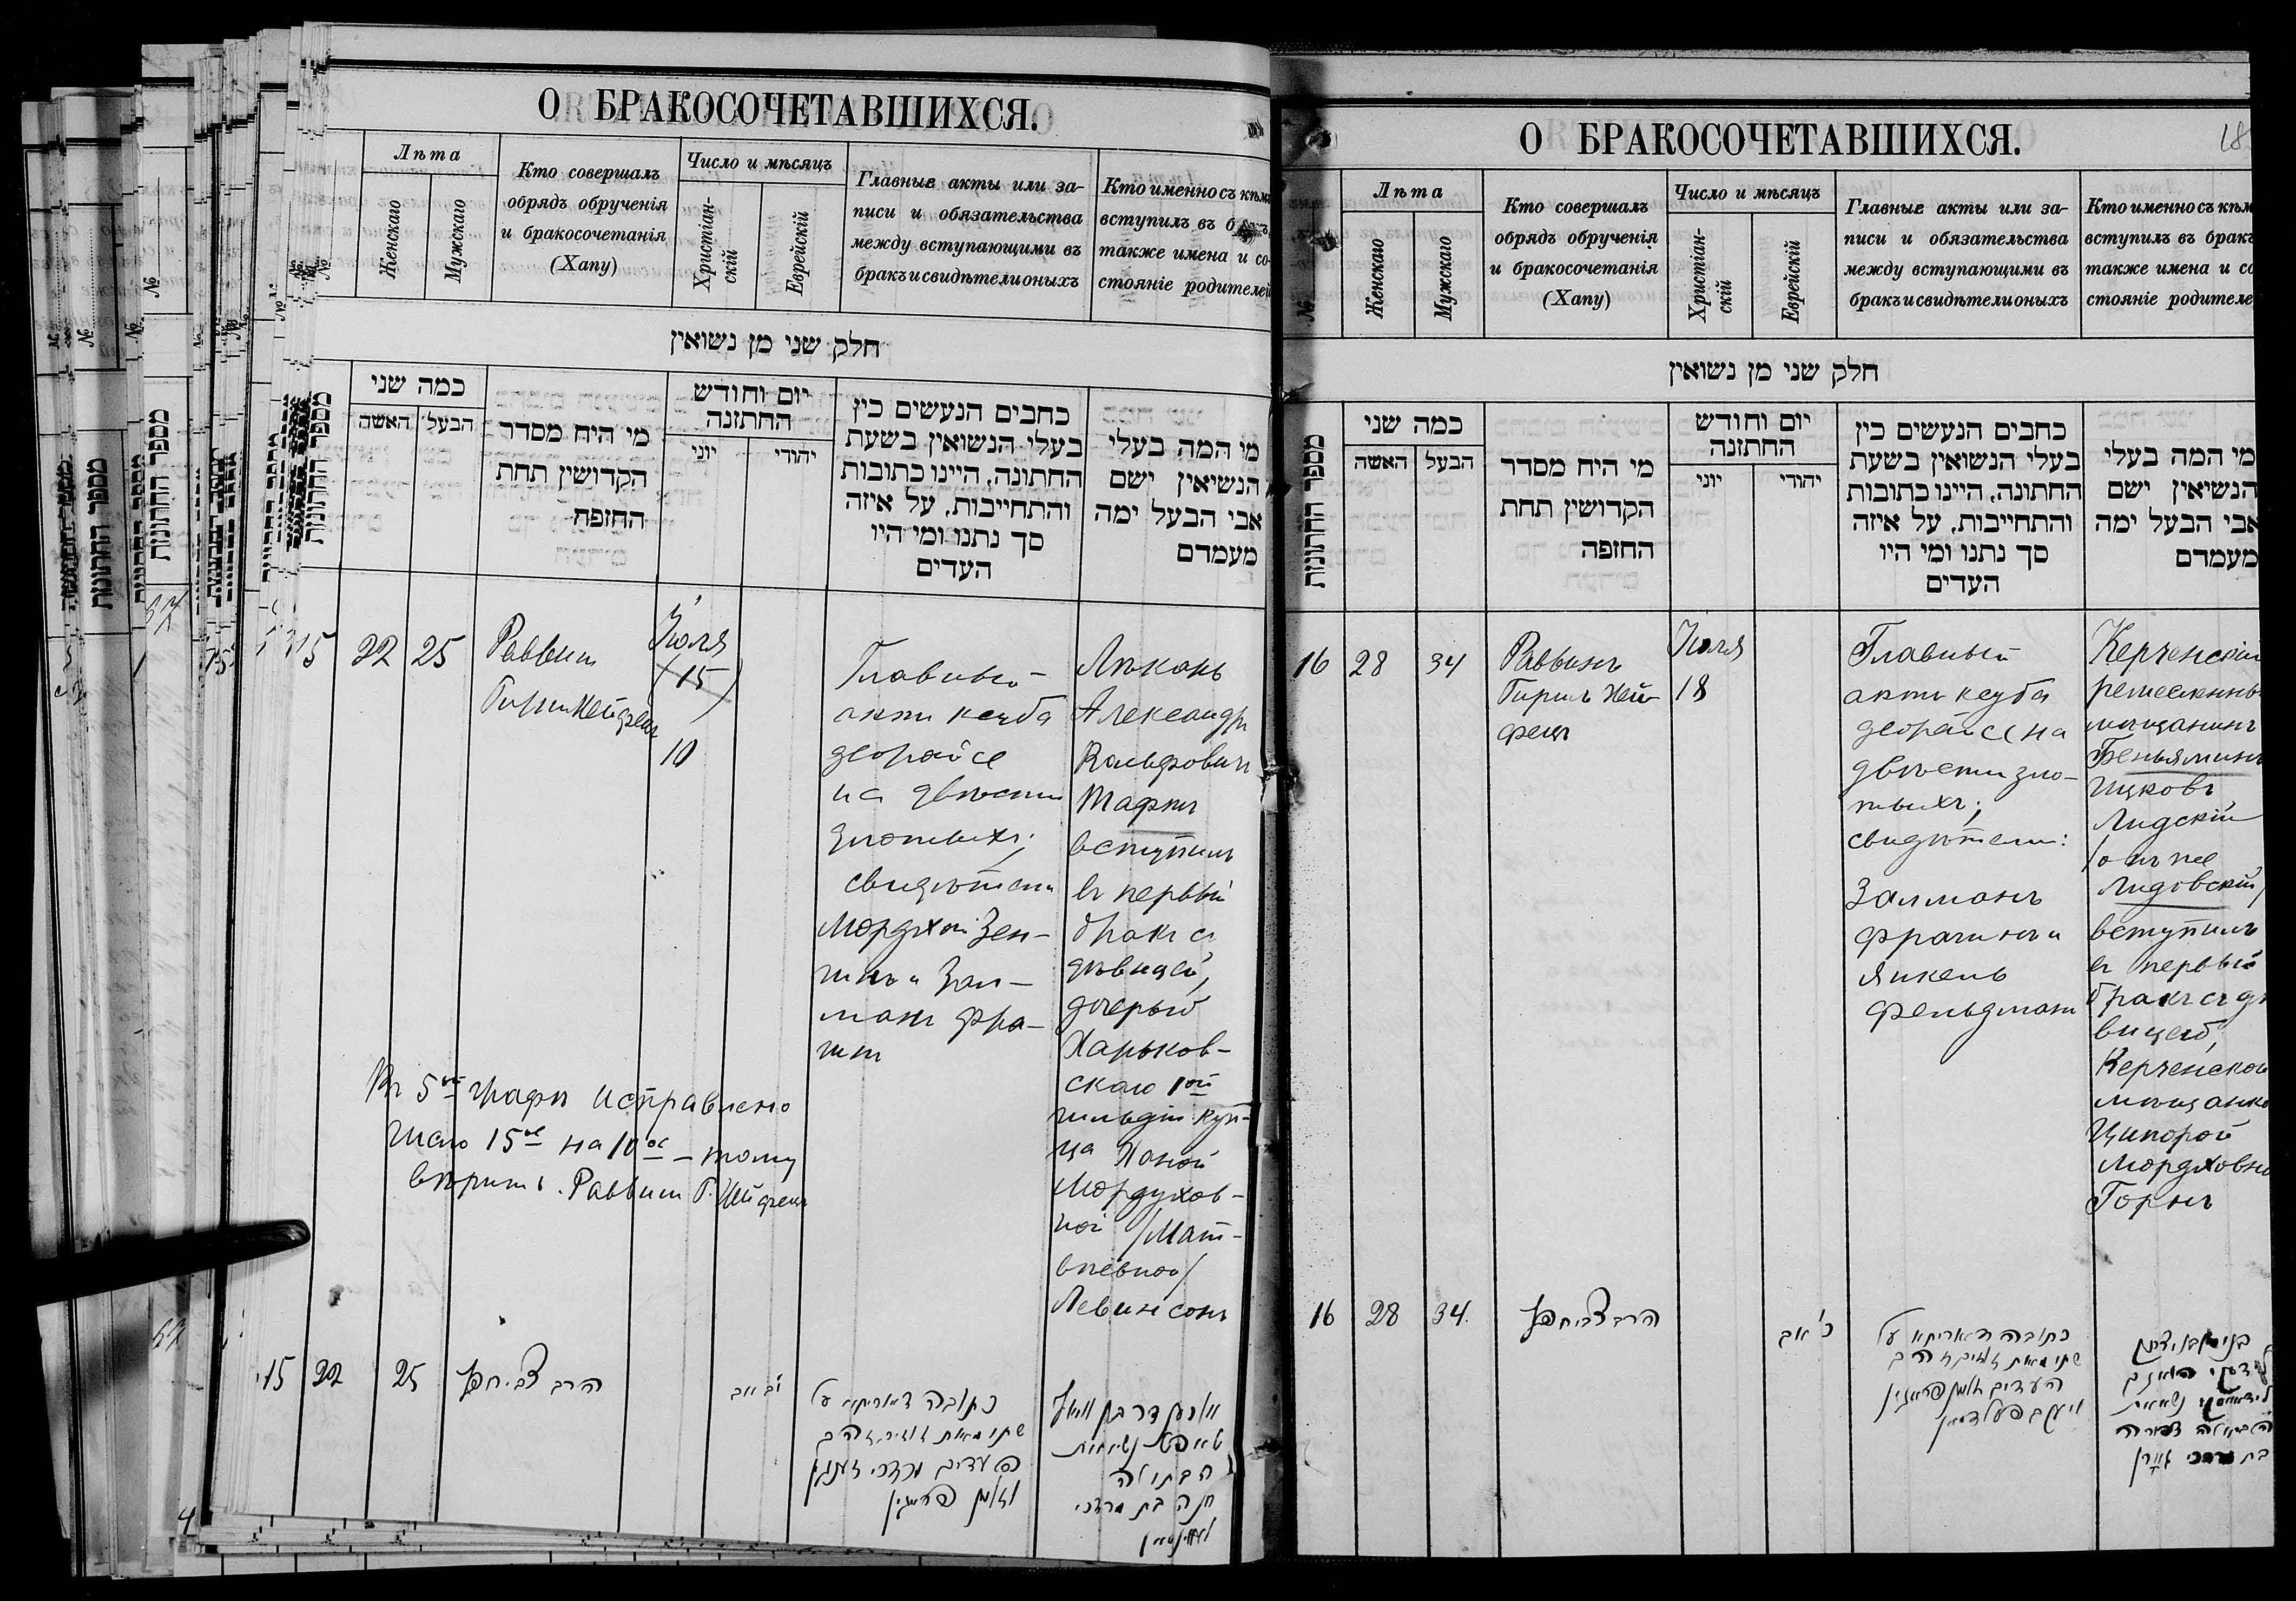 О БРАКОСОЧЕТАВШИХСЯ.
№
Лѣта
Женскаго
Мужскаго
Кто совершалъ
обрядъ обрученія
и бракосочетанія
(Хапу)
Число и мѣсяцъ
Христіан-
скій
Еврейскій
Главные акты или за-
писи и обязательства
между вступающими въ
бракъ и свидѣтели оныхъ
Кто именно съ кѣмъ
вступилъ въ
также имена и со-
стояніе родителей
חלק שני מן נשואין
מספר החתונות
כמה שני
האשה
הבעל
מי היח מסדר
הקדושין תחת
החופה
יום וחודש
החתונה
יוני
יהודי
כתבים הנעשים בין
בעלי הנשואין בשעת
החתונה, היינו כתובות
והתחייבות, על איזה
סך נתנו ומי היו
העדים
מי המה בעלי
הנשיאין ישם
אבי הבעל ימה
מעמדם
15
22
25
Раввинъ
Гиршъ Хейфецъ
Іюля
(15)
10
Главный
актъ ксуба
деорайсе
на двѣсти
злотыхъ;
свидѣтели
Мордхай Зен-
и Зал-
манъ Фра-
Александръ
Вольфовичъ
Тафтъ
вступилъ
въ первый
бракъ съ
дѣвицей,
дочерью
Харьков-
скаго 1ой
гильдіи куп-
ца Ханой
Мордухов-
ной /Мат-
вѣевной/
Левинсонъ
Въ 5ой графѣ исправлено
число 15ое на 10ое – тому
вѣрить. Раввинъ Г. Хейфецъ
15
22
25
הרב צבי חפץ
י"ב אב
כתובה דאורייתא על
שתי מאות זוזים זהב
העדים מרדכי
וזלמן פראגין
נשא את
הבתולה
חנה בת מרדכי
לעווינסאן
О БРАКОСОЧЕТАВШИХСЯ.
18
№
Лѣта
Женскаго
Мужскаго
Кто совершалъ
обрядъ обрученія
и бракосочетанія
(Хапу)
Число и мѣсяцъ
Христіан-
скій
Еврейскій
Главные акты или за-
писи и обязательства
между вступающими въ
бракъ и свидѣтели оныхъ
Кто именно съ кѣм
вступилъ въ бракъ
также имена и со
стояніе родителе
חלק שני מן נשואין
מספר החתונות
כמה שני
האשה
הבעל
מי היח מסדר
הקדושין תחת
החופה
יום וחודש
החתונה
יוני
יהודי
כתבים הנעשים בין
בעלי הנשואין בשעת
החתונה, היינו כתובות
והתחייבות, על איזה
סך נתנו ומי היו
העדים
מי המה בעלי
הנשיאין ישם
אבי הבעל ימה
מעמדם
16
28
34
Раввинъ
Гиршъ Хей-
фецъ
Іюля
18
Главный
актъ ксуба
деорайсе на
двѣсти зло-
тыхъ;
свидѣтели:
Залманъ
Фрагинъ и
Янкель
Фельдманъ
Керченскій
ремесленный
мѣщанинъ
Беньяминъ
Ицковъ
Лидскій
/онъ же
Лидовскій/
вступилъ
въ первый
бракъ съ дѣ
вицей,
Керченской
мѣщанкой
Ципорой
Мордховной
Горнъ
16
28
34.
הרב צבי חפץ
כ' אב
כתובה דאורייתא על
שתי מאות זוזים זהב
העדים זלמן פראגין
ויעקב פעלדמאן
נשא את
הבתולה צפורה
בת מרדכי גורן